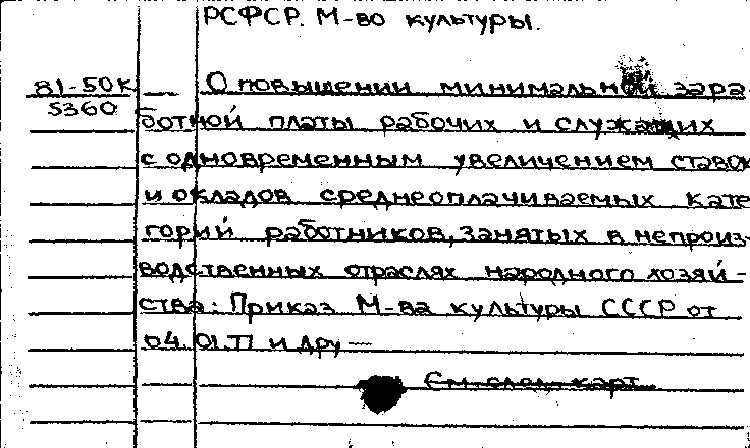 РСФСР. М-во культуры.
81-50К — О повышении минимальной зара-
5360
ботной платы рабочих и служащих
с одновременным увеличением ставок
и окладов среднеоплачиваемых кате
горий работников, занятых в непроиз-
водственных отраслях народного хозяй-
ства: Приказ М-ва культуры СССР от
04.01.77 и дру —
См. след. карт.